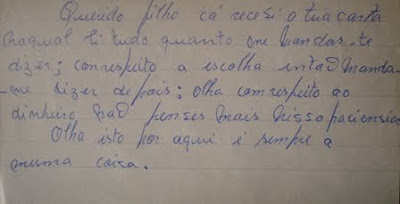 Querido filho cá recesi a tua carta
naqual li tudo quanto me handas-te
dizer; conrespeito a escolha intaõ manda-
-me dizer depois; olha com respeito ao
dinheiro, naõ penses mais nisso paciensia.
Olha isto por aqui é sempre a
mesma coisa.